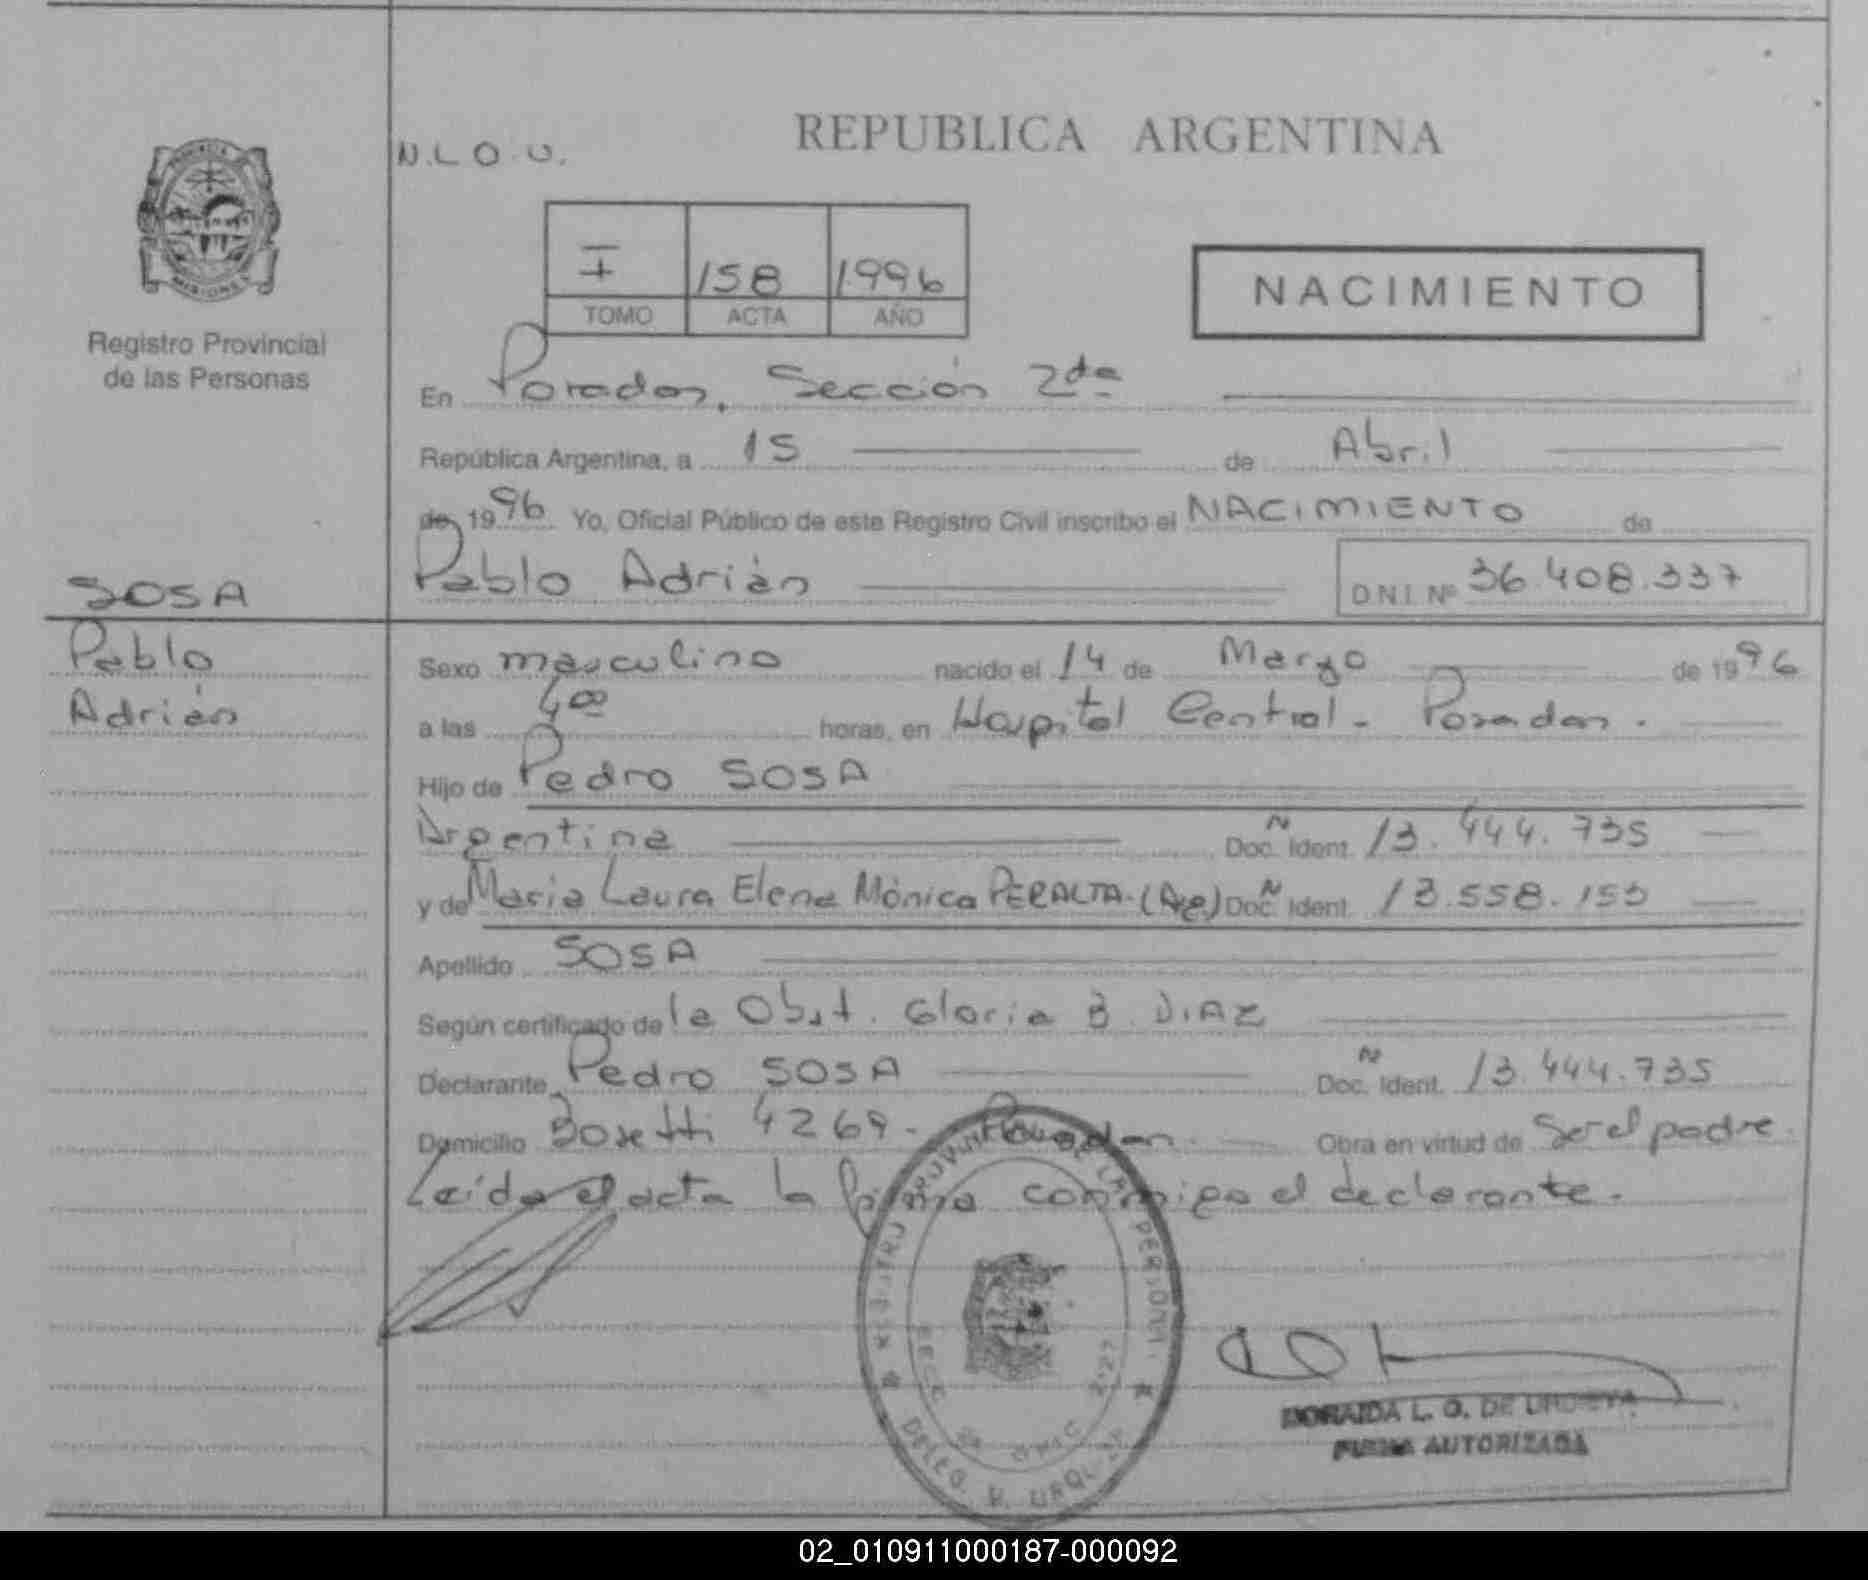 REPUBLICA ARGENTINA
N.L.O.U.
PROVINCIA
MISIONES
Registro Provincial
de las Personas
I 158 1996
TOMO ACTA AÑO
NACIMIENTO
En Posadas, Sección 2da
República Argentina, a 15 de Abril
de 1996 Yo, Oficial Público de este Registro Civil inscribo el NACIMIENTO de
Pablo Adrián D N I Nº 36.408.337
SOSA
Pablo
Adrián
Sexo masculino nacido el 14 de Marzo de 1996
a las 4 00 horas, en Hospital Central - Posadas.
Hijo de Pedro SOSA
Argentina Doc. Ident. 13.444.735
y de Maria Laura Elena Mónica PERALTA. (Arg.) Doc. Ident. 13.558.153
Apellido SOSA
Según certificado de la Obst. Gloria B. DIAZ
Declarante Pedro SOSA Doc. Ident. 13.444.735
Domicilio Bosetti 4269. Posadas Obra en virtud de Ser el padre.
Leída el acta la firma conmigo el declarante.
DE LAS PERSONAS
DELEG. V. URQUIZA
DORAIDA L. G. DE
FIRMA AUTORIZADA
02_010911000187-000092